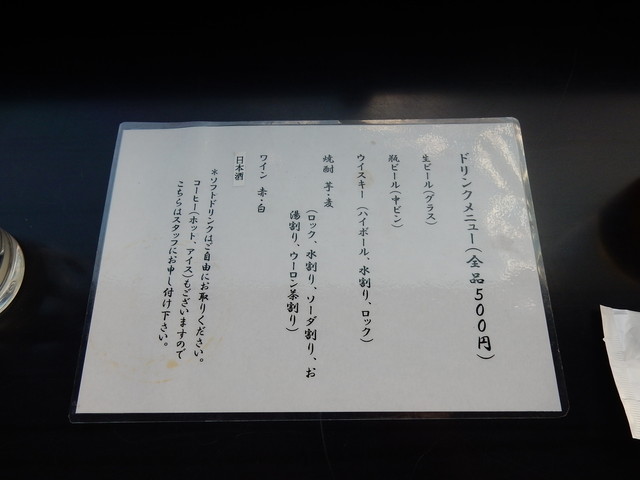 ドリンクメニュー(全品500円)
生ビール(グラス)
瓶ビール(中ビン)
ウイスキー(ハイボール、水割り、ロック)
焼酎 芋・麦
(ロック、水割り、ソーダ割り、お
湯割り、ウーロン茶割り)
ワイン 赤・白
日本酒
*ソフトドリンクはご自由にお取りください。
コーヒー(ホット、アイス)もございますので
こちらはスタッフにお申し付け下さい。